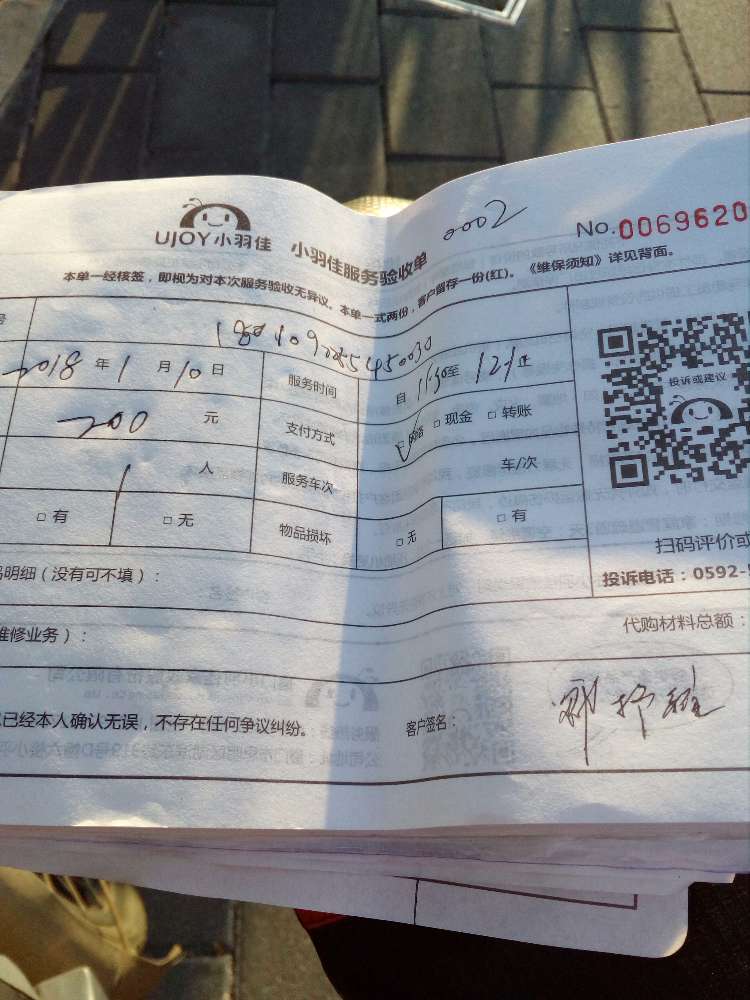 UJOY小羽佳 小羽佳服务验收单 0002 No.0069620
本单一经核签，即视为对本次服务验收无异议。本单一式两份，客户留存一份(红)。《维保须知》详见背面。
号
2018 年 1 月 10 日 服务时间 自 11:30 至
200 元 支付方式 □现金 □转账
投诉或建议
1 人 服务车次 车/次
□有 □无 物品损坏 □无 □有
扫码评价或
明细（没有可不填）： 投诉电话：0592-
维修业务）： 代购材料总额：
已经本人确认无误，不存在任何争议纠纷。 客户签名：